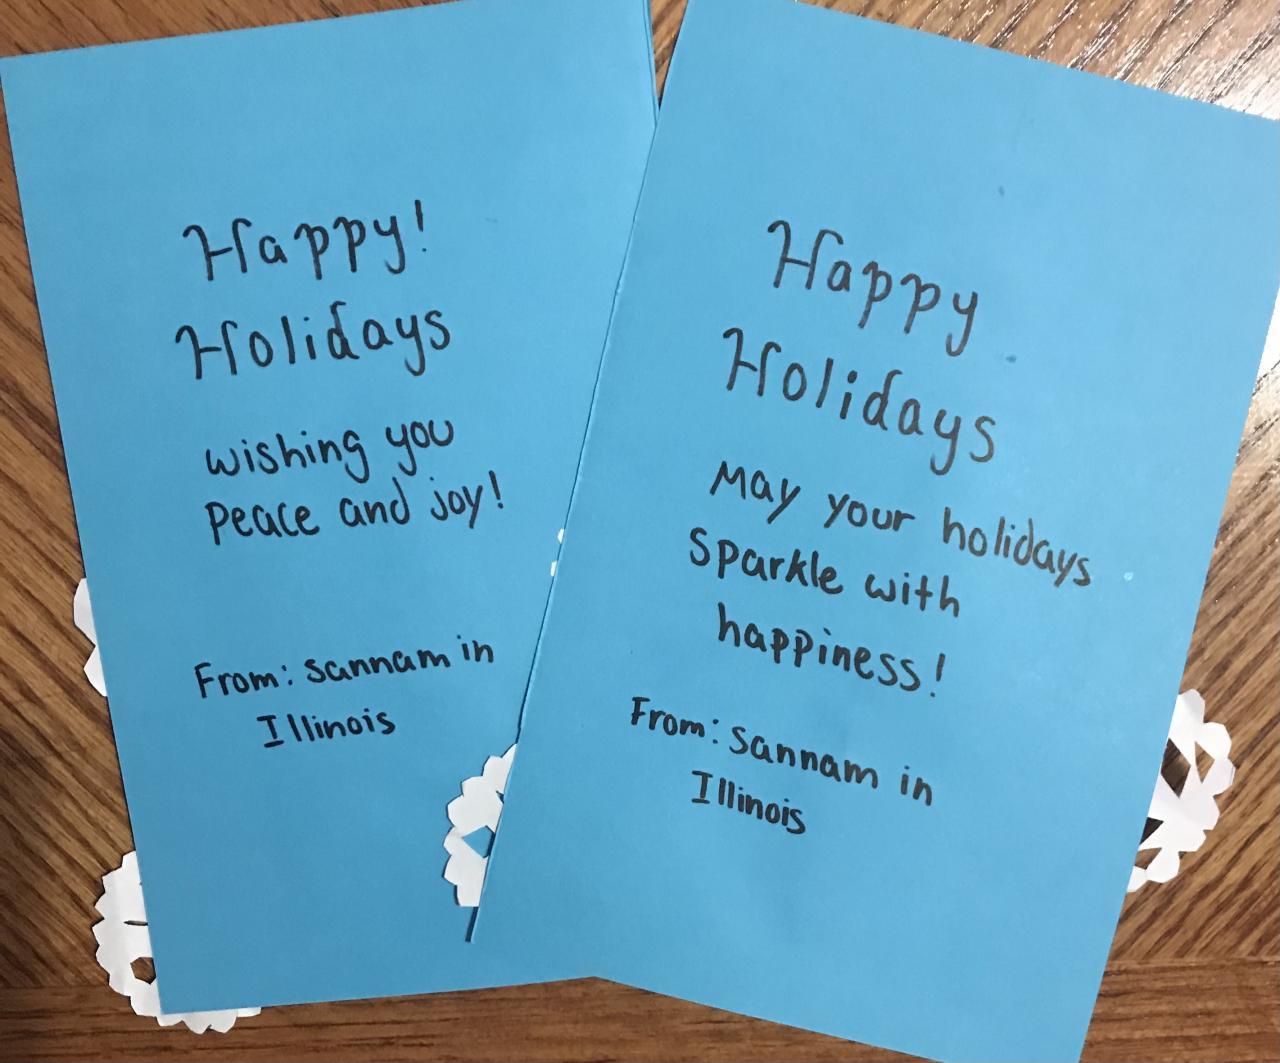 Happy!
Holidays
wishing you
peace and joy!
From: sannam in
Illinois
Happy
Holidays
May your holidays
sparkle with
happiness!
From: sannam in
Illinois